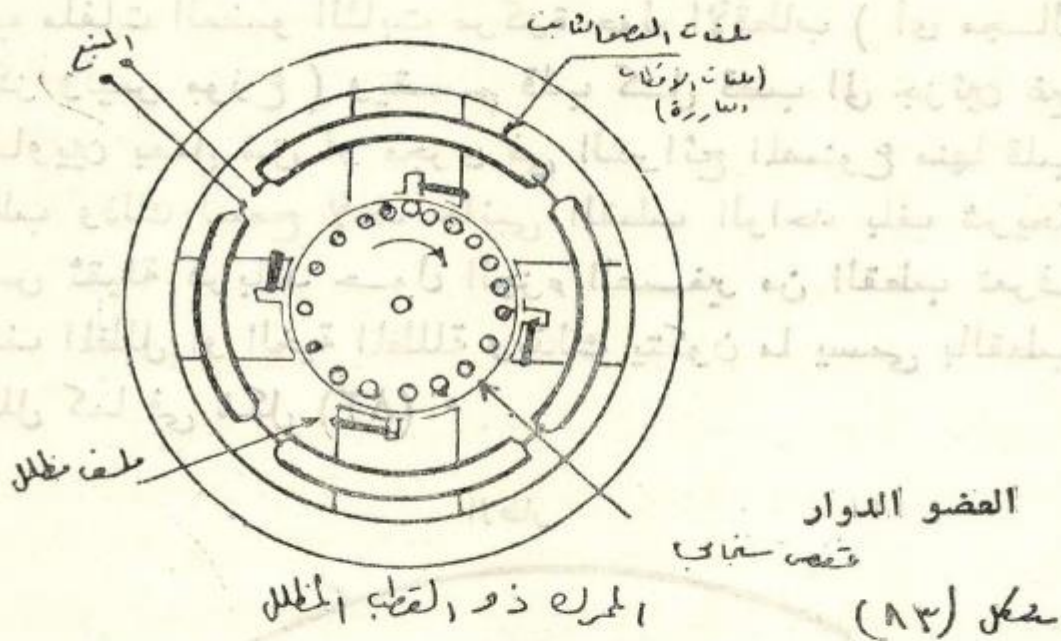 ملفات العضو الثابت
(ملفات الأقطاب
البارزة)
المنبع
ملف مظلل
العضو الدوار
قفص سنجابي
المحرك ذو القطب المظلل
شكل (٨٣)